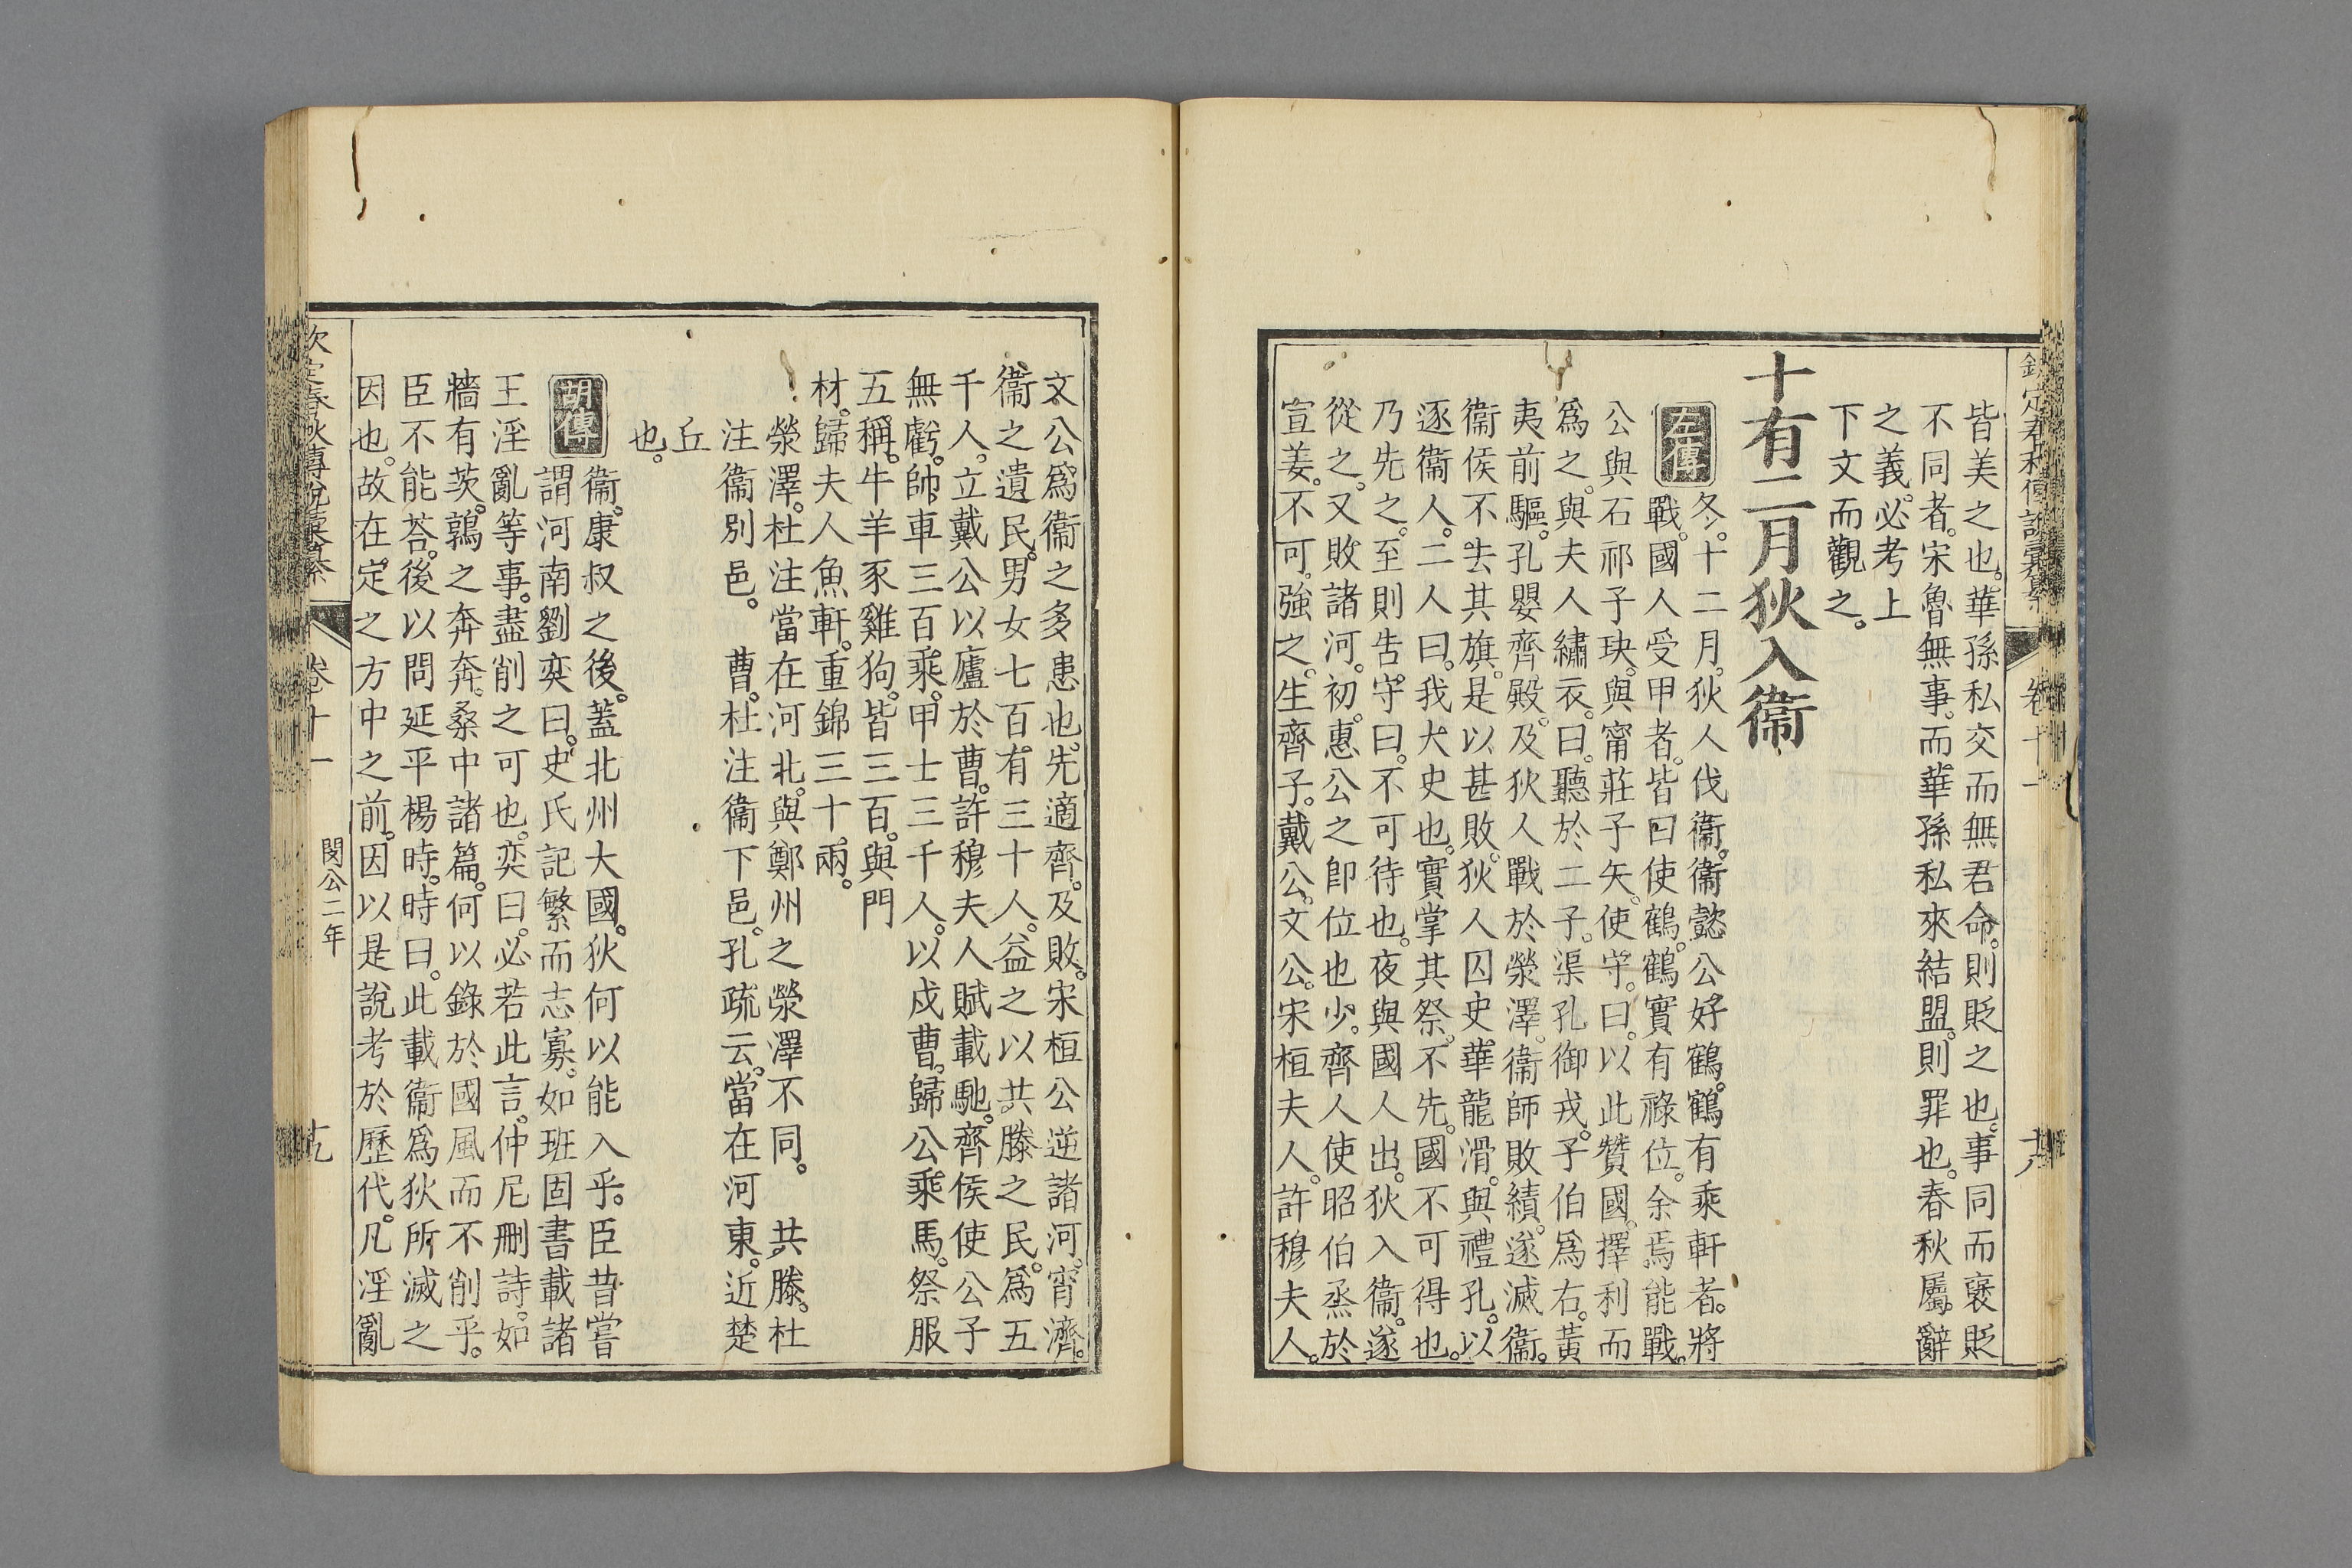 皆美之也。華孫私交而無君命。則貶之也。事同而襃貶
不同者。宋魯無事。而華孫私來結盟。則罪也。春秋屬辭
之義。必考上
下文而觀之。
十有二月狄入衞
左傳
冬。十二月。狄人伐衞。衞懿公好鶴。鶴有乘軒者。將
戰。國人受甲者。皆曰使鶴。鶴實有祿位。余焉能戰。
公與石祁子玦。與甯莊子矢。使守。曰。以此贊國。擇利而
爲之。與夫人繡衣。曰。聽於二子。渠孔御戎。子伯爲右。黃
夷前驅。孔嬰齊殿。及狄人戰於滎澤。衞師敗績。遂滅衞。
衞侯不去其旗。是以甚敗。狄人囚史。華龍滑。與禮孔。以
逐衞人。二人曰。我大史也。實掌其祭。不先。國不可得也。
乃先之。至則告。守曰。不可待也。夜與國人出。狄入衞。遂
從之。又敗諸河。初。惠公之卽位也少。齊人使昭伯烝於
宣姜。不可。強之。生齊子。戴公。文公。宋桓夫人。許穆夫人。
文公爲衞之多患也。先適齊。及敗。宋桓公逆諸河。宵濟。
衞之遺民。男女七百有三十人。益之以共。滕之民。爲五
千人。立戴公以廬於曹。許穆夫人賦載馳。齊侯使公子
無虧。帥車三百乘。甲士三千人。以戍曹。歸公乘馬。祭服
五稱。牛羊豕雞狗。皆三百。與門
材。歸夫人魚軒。重錦三十兩。
滎澤。杜注當在河北。與鄭州之滎澤不同。 共滕。杜
注衞別邑。 曹。杜注衞下邑。孔疏云。當在河東。近楚
丘
也。
胡傳
衞。康叔之後。蓋北州大國。狄何以能入乎。臣昔嘗
謂河南劉奕曰。史氏記繁而志寡。如班固書載諸
王淫亂等事。盡削之可也。奕曰。必若此言。仲尼刪詩。如
牆有茨。鶉之奔奔。桑中諸篇。何以錄於國風而不削乎。
臣不能荅。後以問延平楊時。時曰。此載衞爲狄所滅之
因也。故在定之方中之前。因以是說考於歷代。凡淫亂
卷十一
閔公二年